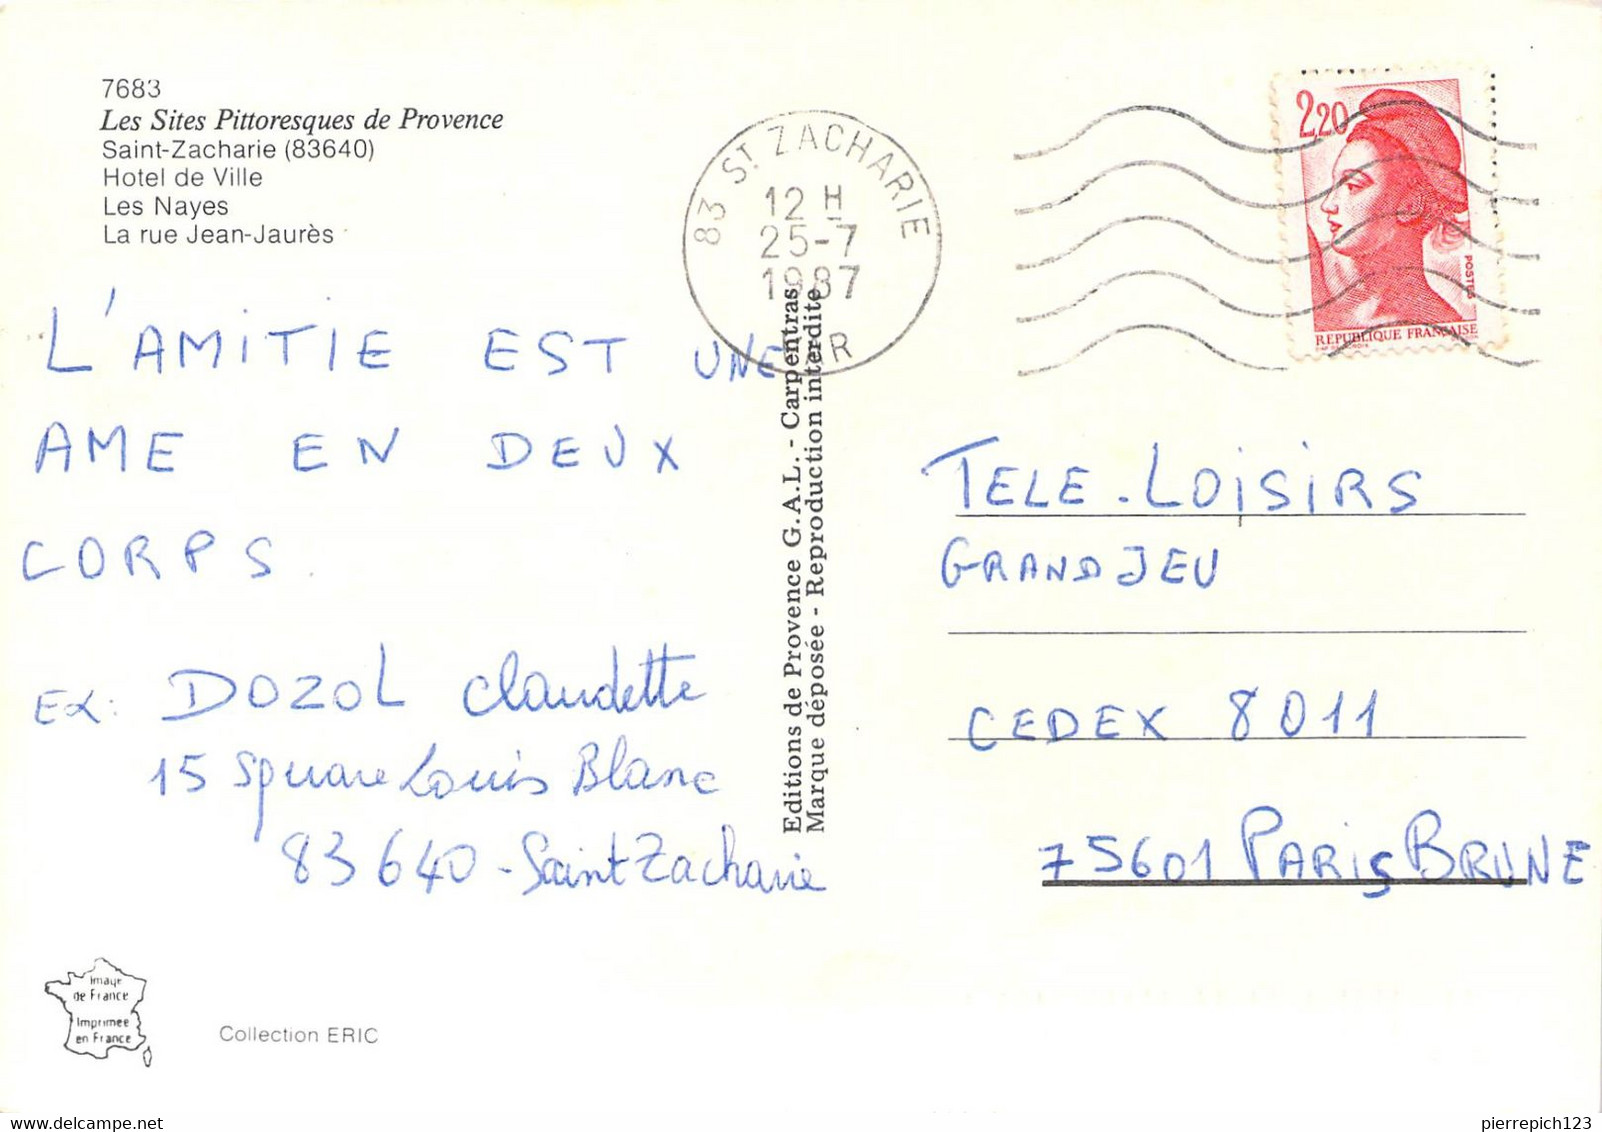 7683
Les Sites Pittoresques de Provence
Saint-Zacharie (83640)
Hotel de Ville
Les Nayes
La rue Jean-Jaurès
83 ST. ZACHARIE
12 H
25-7
1987
2,20
POSTES
REPUBLIQUE FRANÇAISE
L'AMITIE EST UNE
AME EN DEUX
CORPS.
DOZOL Claudette
15 Square Louis Blanc
83640 - Saint Zacharie
Editions de Provence G.A.L. - Carpentras
Marque déposée - Reproduction interdite
TELE-LOISIRS
GRAND JEU
CEDEX 8011
75601 PARIS BRUNE
Image
de France
Imprimée
en France
Collection ERIC
https://www.delcampe.net
pierrepich123